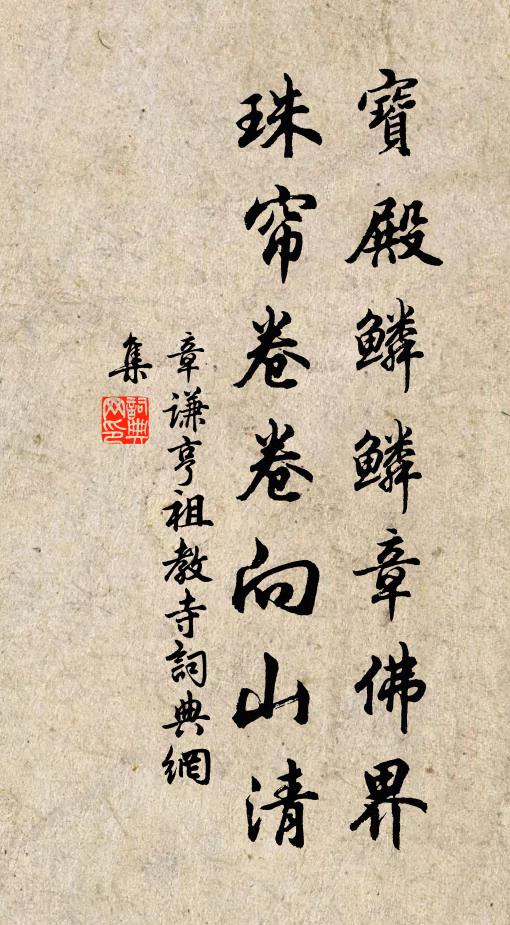 寶殿鱗鱗章佛界
珠帘卷卷向山清
章谦亨祖教寺詞典網
集
詞典
网印